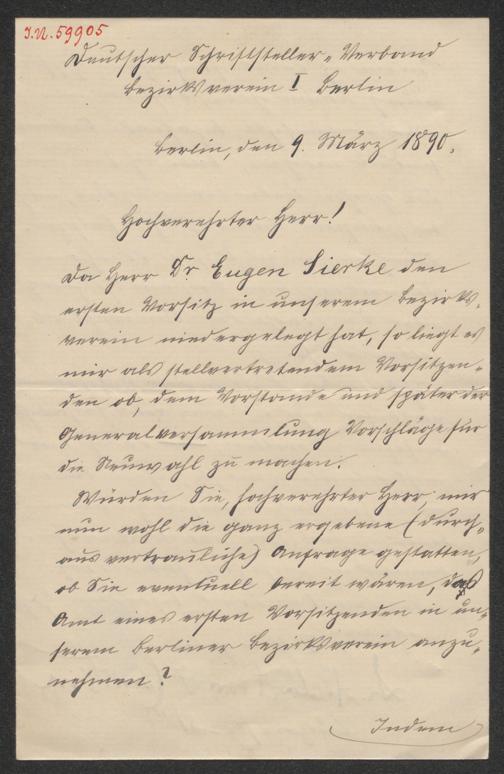 I.N. 59905
Deutscher Schriftsteller-Verband
Bezirksverein I Berlin
Berlin, den 9. März 1890.
Hochverehrter Herr!
Da Herr Dr Eugen Sierke den
ersten Vorsitz in unserem Bezirks-
verein niedergelegt hat, so liegt es
mir als stellvertretendem Vorsitzen-
den ob, dem Vorstande und später der
Generalversammlung Vorschläge für
die Neuwahl zu machen.
Würden Sie, hochverehrter Herr, mir
nun wohl die ganz ergebene (durch-
aus vertrauliche) Anfrage gestatten,
ob Sie eventuell bereit wären, das
Amt eines ersten Vorsitzenden in un-
serem Berliner Bezirksverein anzu-
nehmen?
Indem